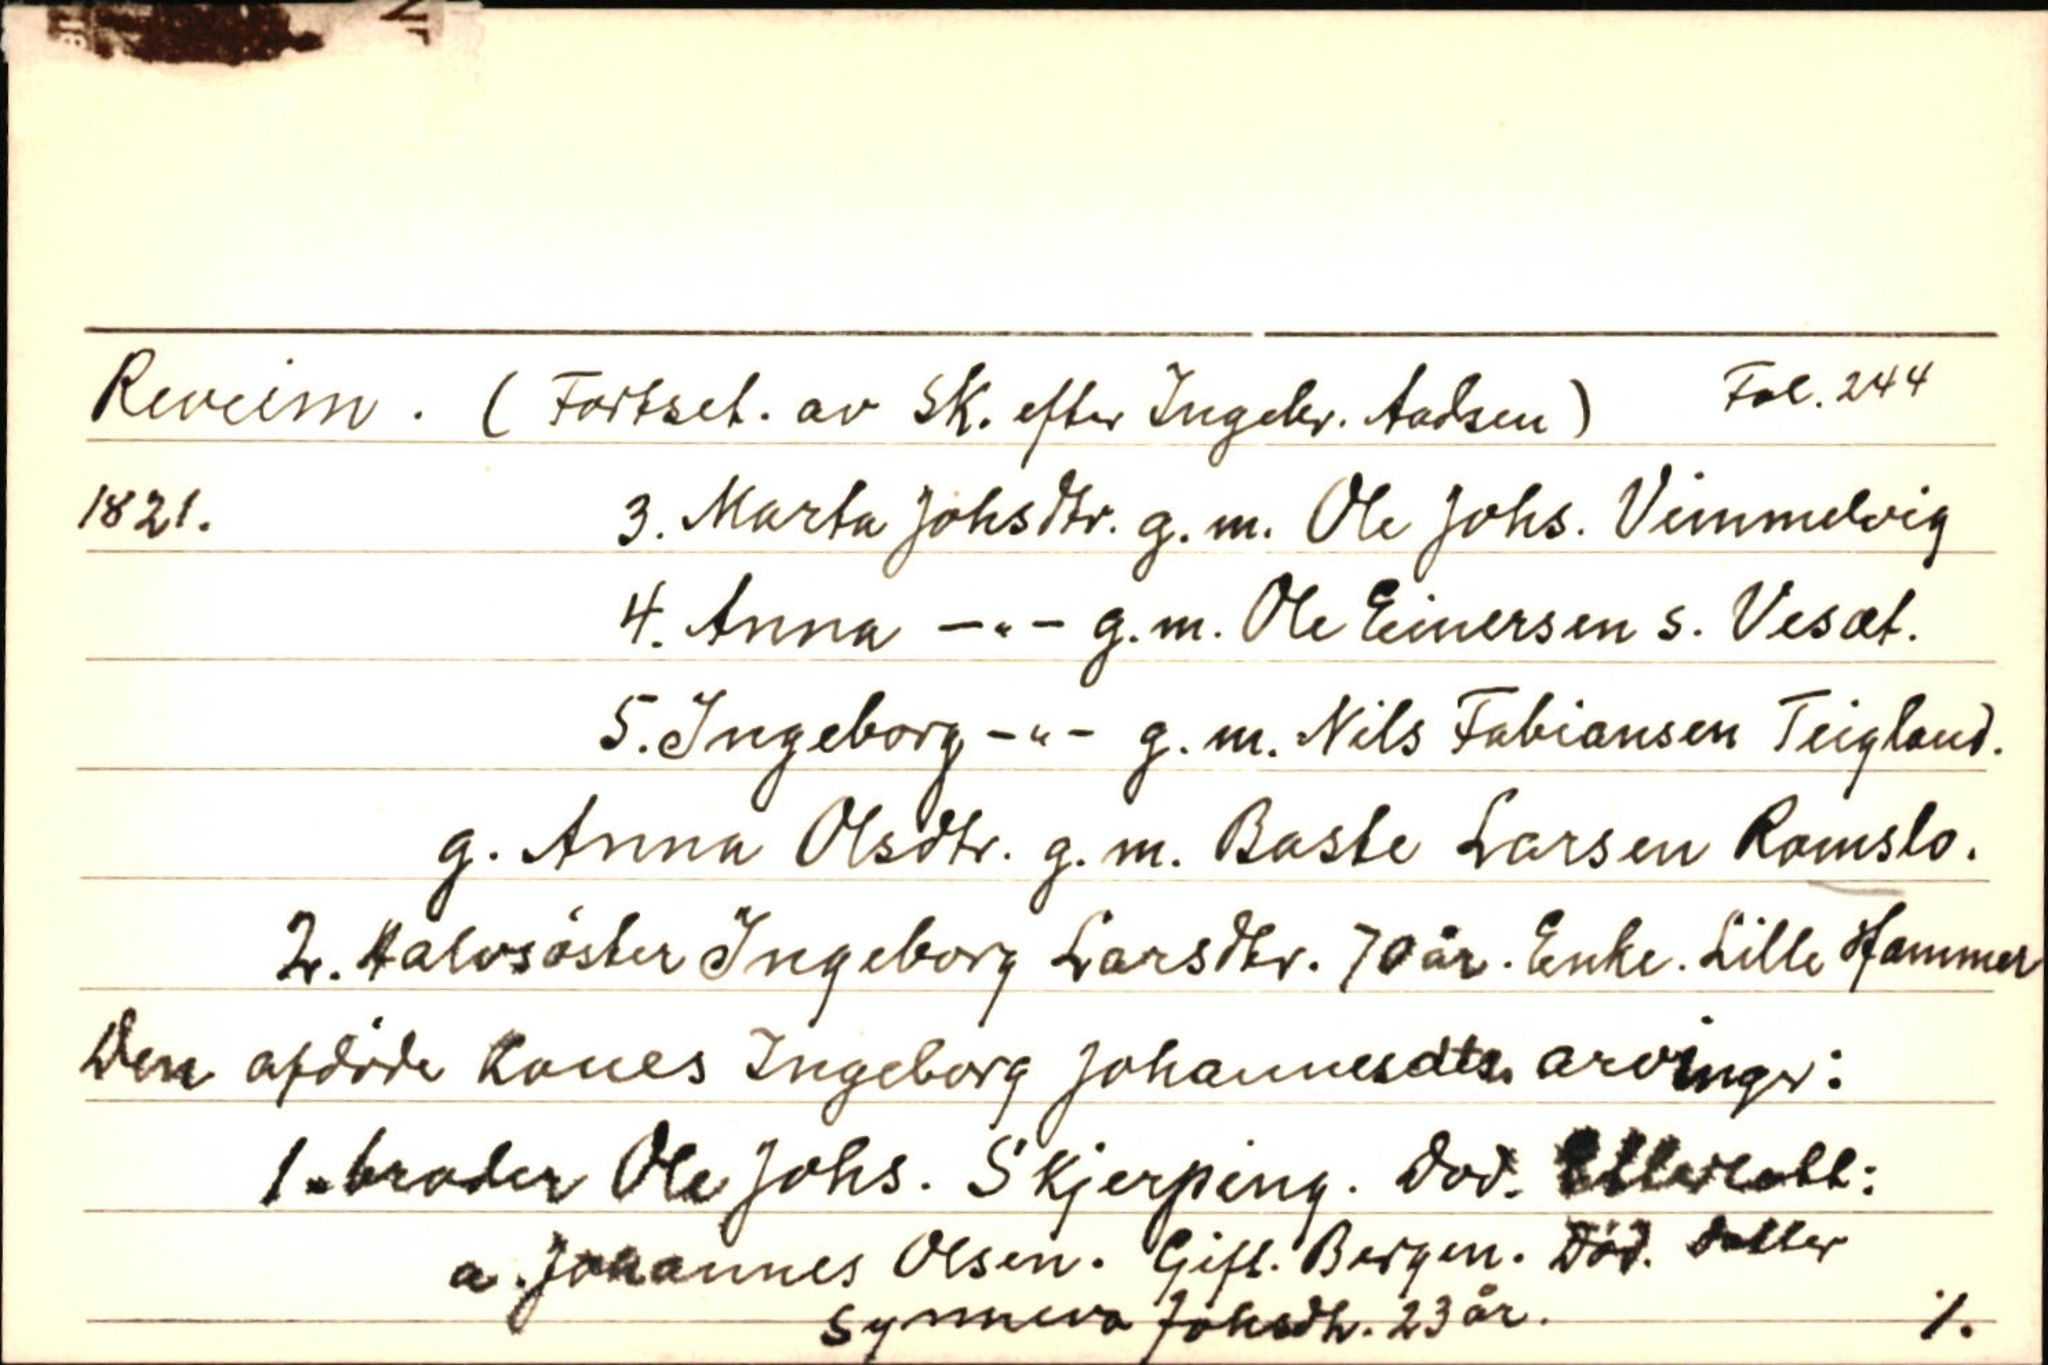 Reveim. (Fortset. av Sk. efter Ingebr. Aadsen) Fol. 244
1821. 3. Marta Johsdtr. g. m. Ole Johs. Vimmelvig
4. Anna -"- g. m. Ole Einersen s. Vesæt.
5. Ingeborg -"- g. m. Nils Fabiansen Teigland.
g. Anna Olsdtr. g. m. Baste Larsen Romslo.
2. Halvsöster Ingeborg Larsdtr. 70 år. Enke. Lille Hammer
Den afdöde Kones Ingeborg Johannesdtr. arvinger:
1. broder Ole Johs. Skjerping. Död. Etterlatt:
a. Johannes Olsen. Gift. Bergen. Död. Datter
Synneva Johsdtr. 23 år. ⁒